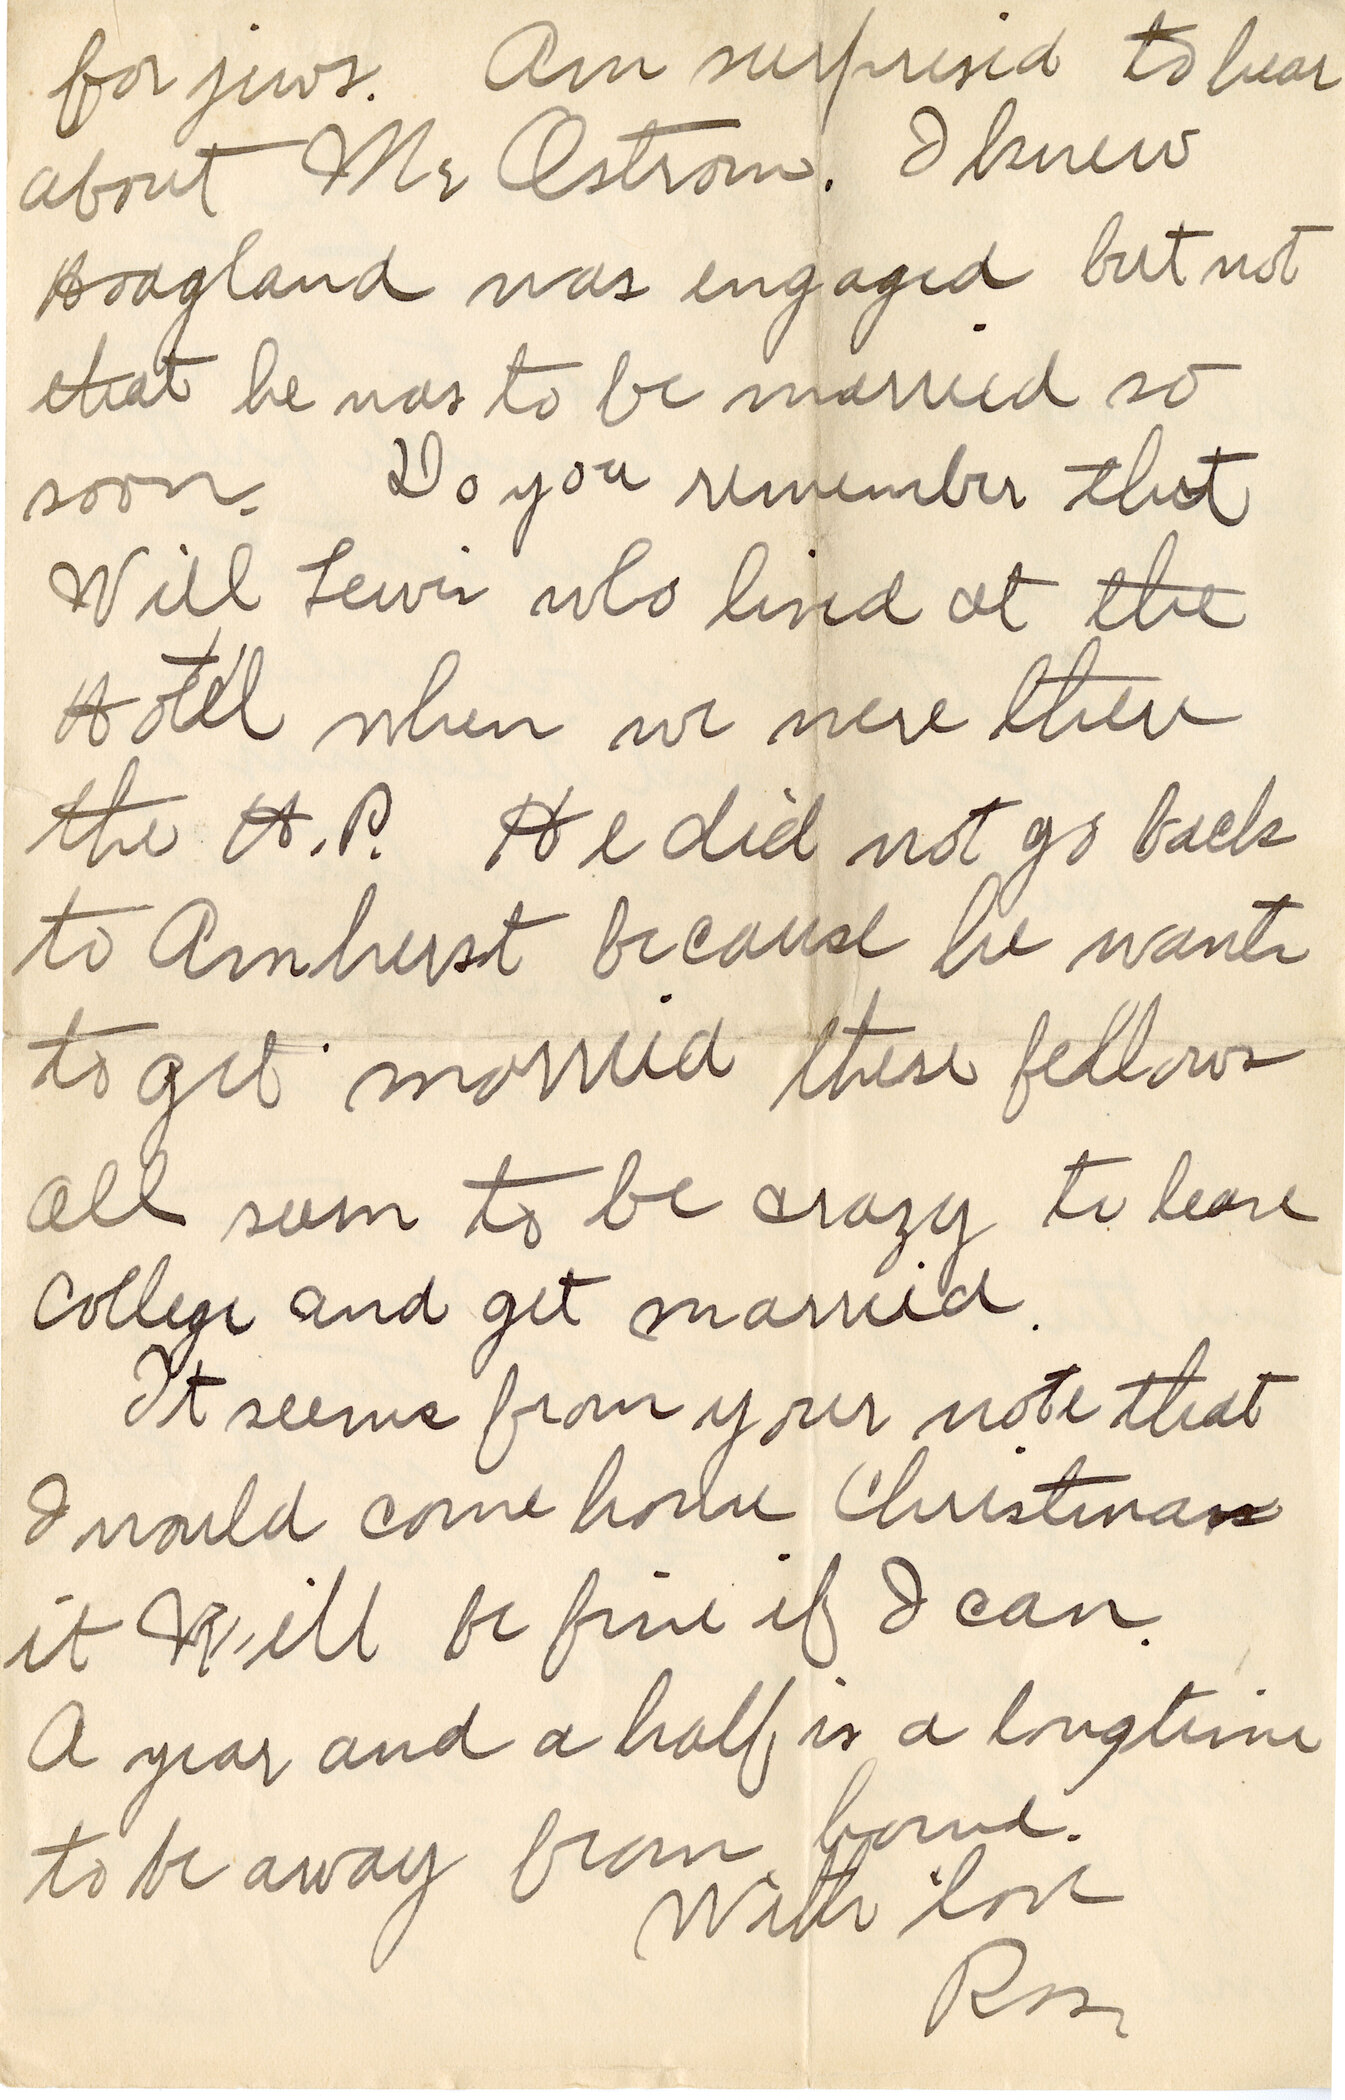 for jews. Am surprised to hear
about Mr Ostrom. I knew
Hoagland was engaged but not
that he was to be married so
soon. Do you remember that
Will Lewis who lived at the
Hotel when we were there
the H.P. He did not go back
to Amherst because he wants
to get married these fellows
all seem to be crazy to leave
College and get married.
It seems from your note that
I would come home Christmas
it Will be fine if I can.
A year and a half is a longtime
to be away from home.
With love
Ross